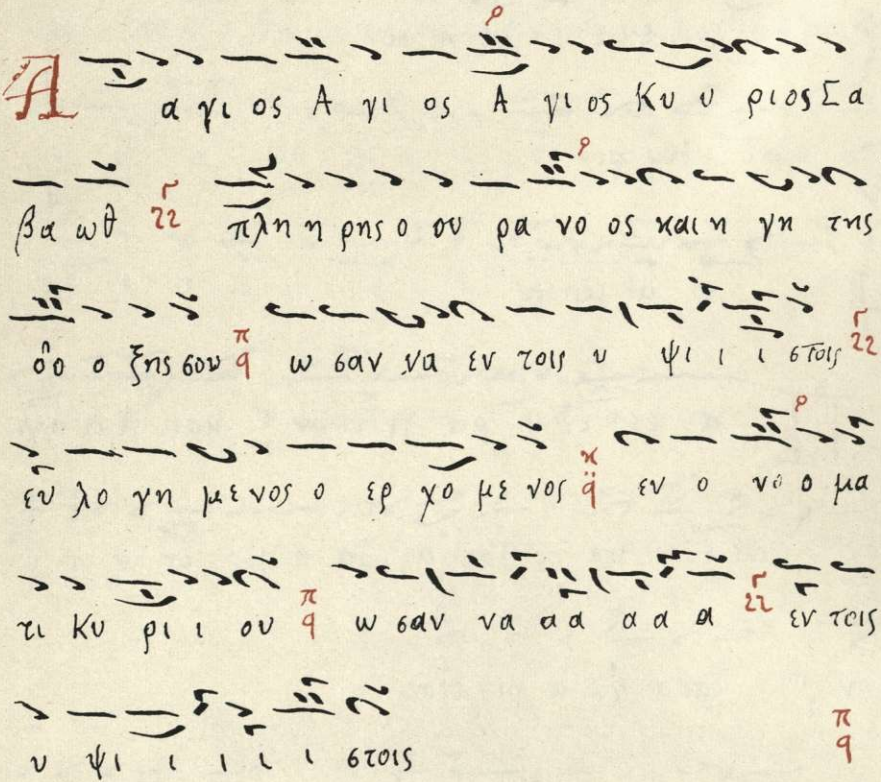 Α α γι ος Α γι ος Α γι ος Κυ υ ριος Σα
βα ωθ πλη η ρης ο ου ρα νο ος και η γη της
δο ο ξης σου ω σαν να εν τοις υ ψι ι ι στοις
ευ λο γη με νος ο ερ χο με νος εν ο νο ο μα
τι Κυ ρι ι ου ω σαν να α α α α α εν τοις
υ ψι ι ι ι ι στοις